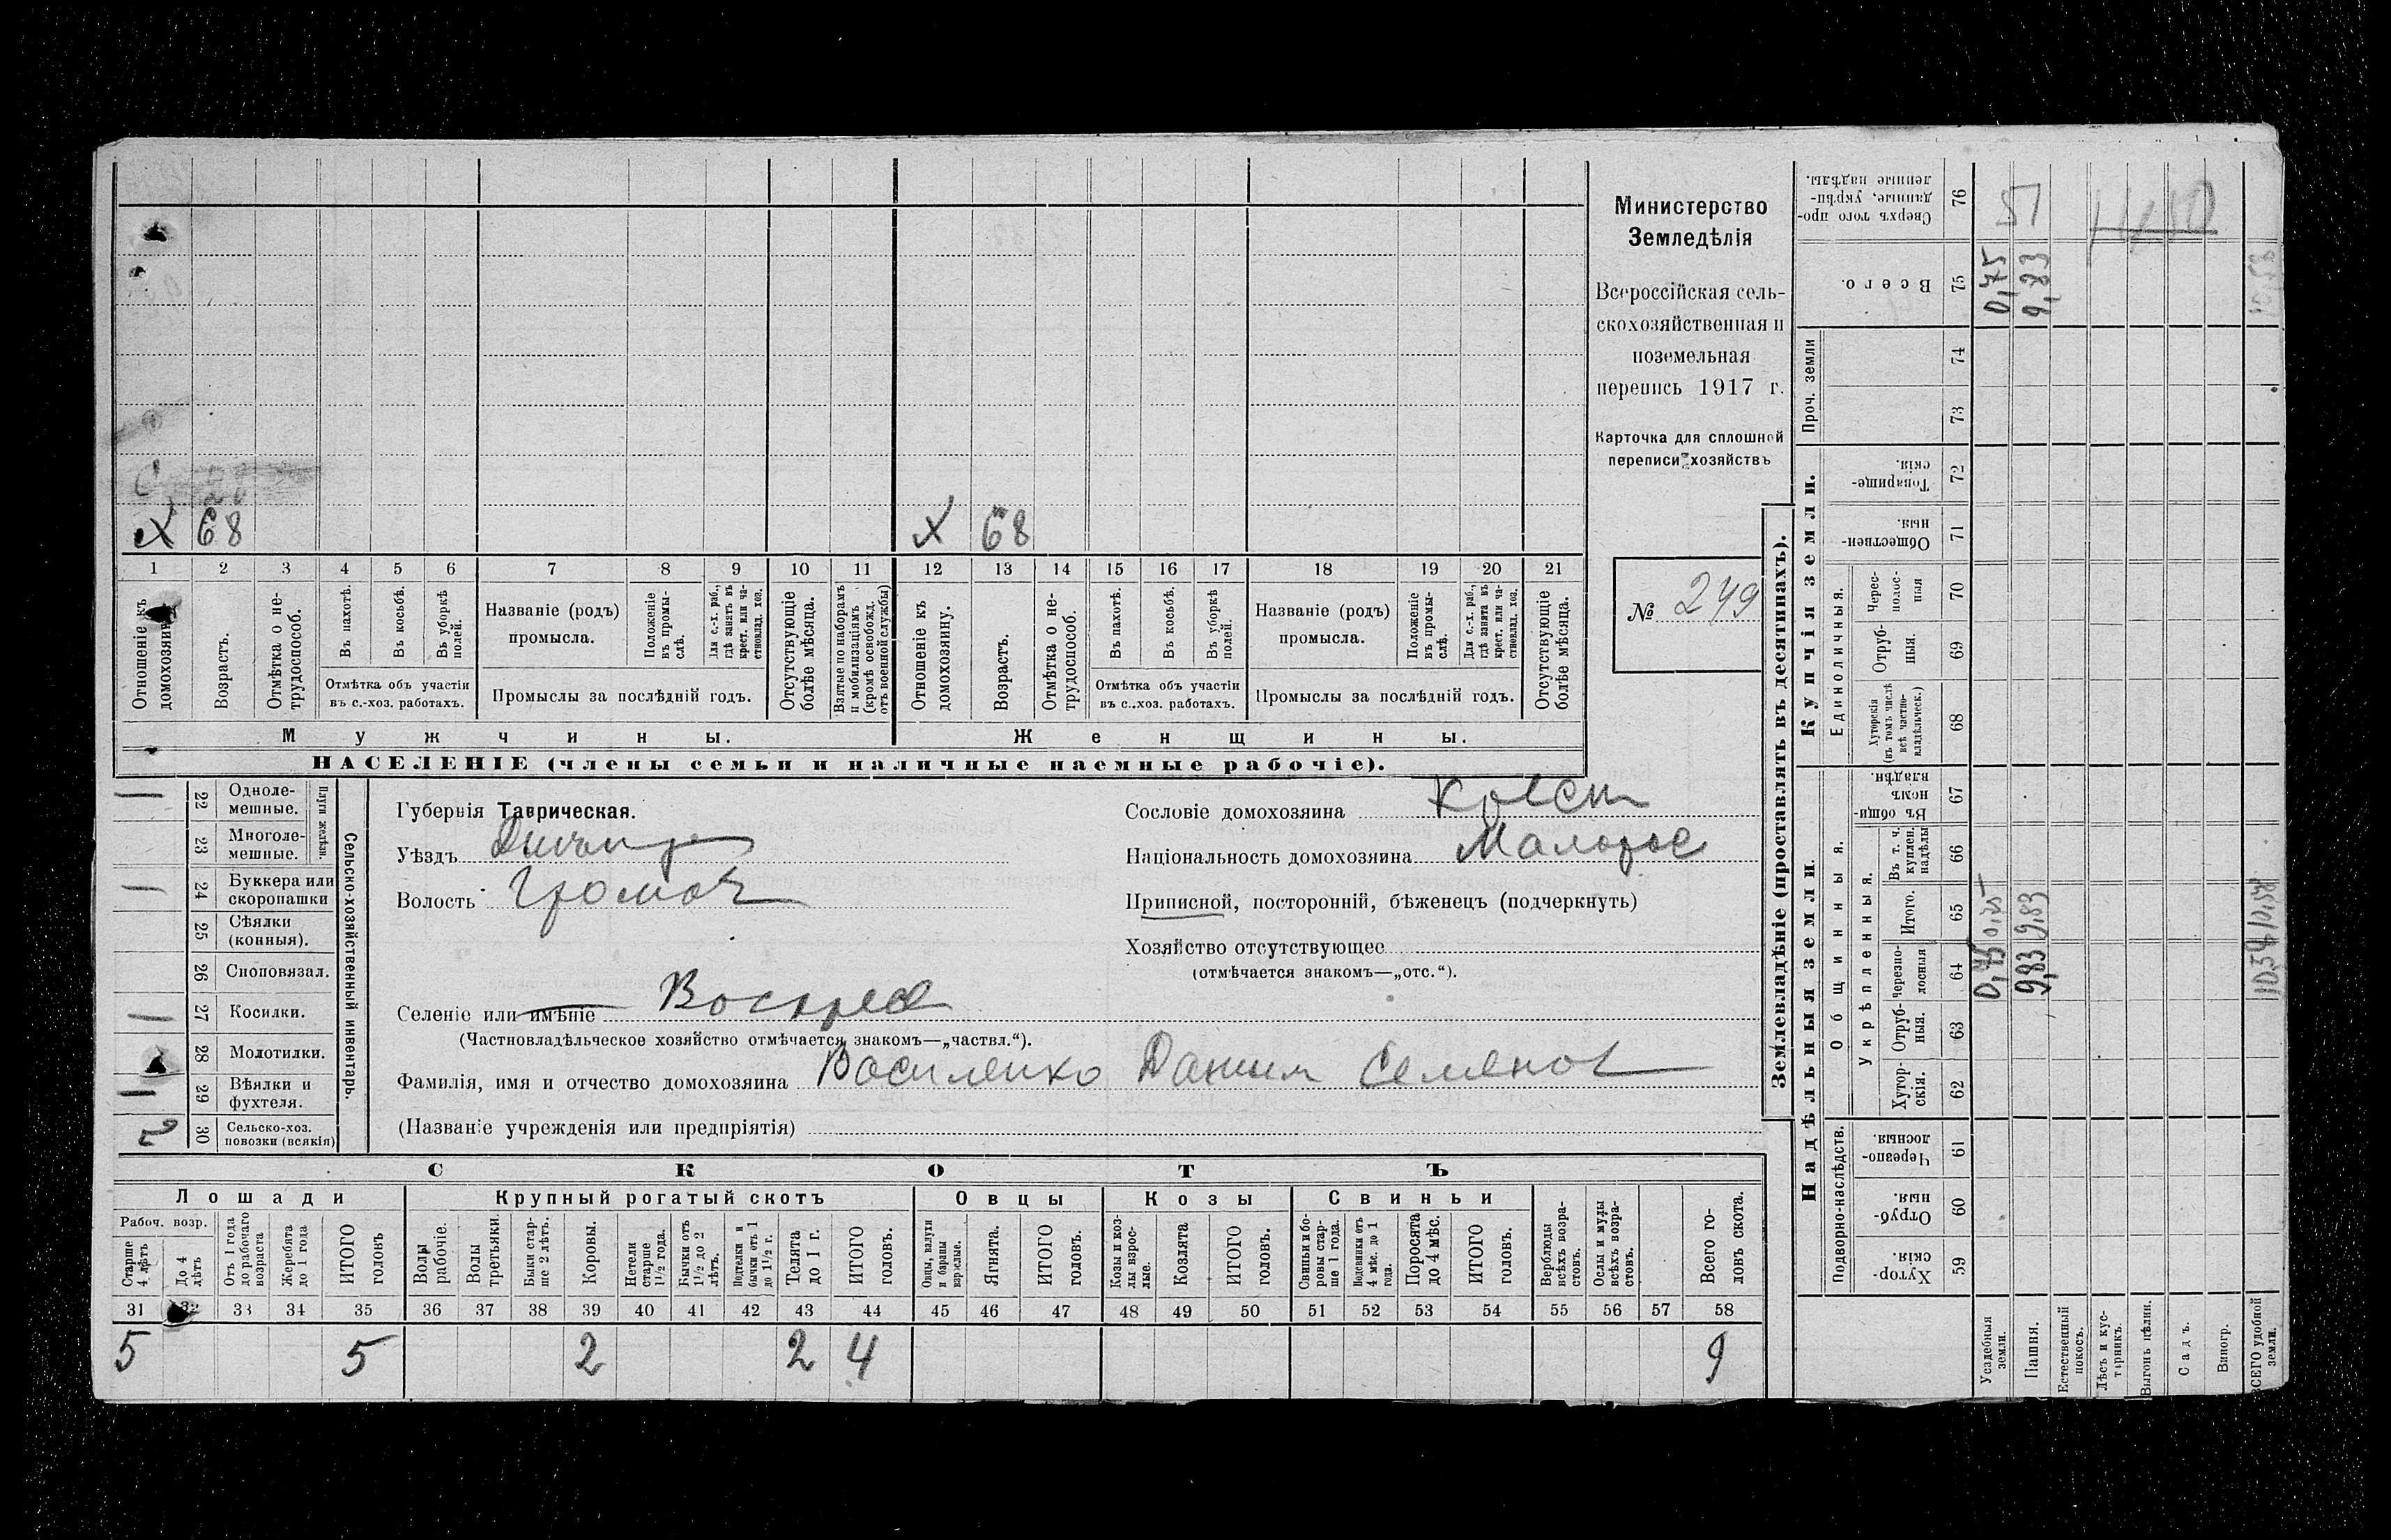 Министерство
Земледѣлія
Всероссійская сель-
скохозяйственная и
поземельная
перепись 1917 г.
Карточка для сплошной
переписи хозяйствъ
№ 249
х 68
х 68
1 2 3 4 5 6 7 8 9 10 11 12 13 14 15 16 17 18 19 20 21
Отношеніе къ домохозяину.
Возрастъ.
Отмѣтка о не-трудоспособ.
Въ пахотѣ.
Въ косьбѣ.
Въ уборкѣ полей.
Названіе (родъ) промысла.
Положеніе въ промы-слѣ.
Для с.-х. раб., гдѣ занятъ въ крест. или ча-стновлад. хоз.
Отсутствующіе болѣе мѣсяца.
Взятые по наборамъ и мобилизаціямъ (кромѣ освобожд. отъ военной службы)
Отношеніе къ домохозяину.
Возрастъ.
Отмѣтка о не-трудоспособ.
Въ пахотѣ.
Въ косьбѣ.
Въ уборкѣ полей.
Названіе (родъ) промысла.
Положеніе въ промы-слѣ.
Для с.-х. раб., гдѣ занята въ крест. или ча-стновлад. хоз.
Отсутствующіе болѣе мѣсяца.
Отмѣтка объ участіи въ с.-хоз. работахъ.
Промыслы за послѣдній годъ.
Отмѣтка объ участіи въ с.-хоз. работахъ.
Промыслы за послѣдній годъ.
Мужчины.
Женщины.
НАСЕЛЕНІЕ (члены семьи и наличные наемные рабочіе).
Сельско-хозяйственный инвентарь.
Плуги желѣзн.
22 Одноле-мешные.
23 Многоле-мешные.
24 Буккера или скоропашки
25 Сѣялки (конныя).
26 Сноповязал.
27 Косилки.
28 Молотилки.
29 Вѣялки и фухтеля.
2 30 Сельско-хоз. повозки (всякія)
Губернія Таврическая.
Уѣздъ
Волость
Селеніе или имѣніе Воскрес
(Частновладѣльческое хозяйство отмѣчается знакомъ—„частвл.“).
Фамилія, имя и отчество домохозяина Василенко Даниил Семенов
(Названіе учрежденія или предпріятія)
Сословіе домохозяина Крест
Національность домохозяина Малорос
Приписной, посторонній, бѣженецъ (подчеркнуть)
Хозяйство отсутствующее
(отмѣчается знакомъ—„отс.“).
СКОТЪ
Лошади
Крупный рогатый скотъ
Овцы
Козы
Свиньи
Рабоч. возр.
Старше 4 лѣтъ
До 4 лѣтъ
Отъ 1 года до рабочаго возраста
Жеребята до 1 года
ИТОГО головъ
Волы рабочіе.
Волы третьяки.
Быки стар-ше 2 лѣтъ.
Коровы.
Нетели старше 1½ года.
Бычки отъ 1½ до 2 лѣтъ.
Подтелки и бычки отъ 1 до 1½ г.
Телята до 1 г.
ИТОГО головъ.
Овцы, валухи и бараны взрослые.
Ягнята.
ИТОГО головъ.
Козы и коз-лы взрос-лые.
Козлята
ИТОГО головъ.
Свиньи и бо-ровы стар-ше 1 года.
Подсвинки отъ 4 мѣс. до 1 года.
Поросята до 4 мѣс.
ИТОГО головъ.
Верблюды всѣхъ возра-стовъ.
Ослы и мулы всѣхъ возра-стовъ.
Всего го-ловъ скота.
31 32 33 34 35 36 37 38 39 40 41 42 43 44 45 46 47 48 49 50 51 52 53 54 55 56 57 58
5 5 2 2 4 9
Землевладѣніе (проставлять въ десятинахъ).
Надѣльныя земли
Купчія земли.
Проч. земли
Подворно-наслѣдств.
Общинныя.
Укрѣпленныя.
Единоличныя.
Сверхъ того про-данные, укрѣп-ленные надѣлы. 76
Всего. 75 0,75 9,83
74
73
Товарище-скія. 72
Обществен-ныя. 71
Черес-полос-ныя 70
Отруб-ныя. 69
Хуторскія (въ томъ числѣ всѣ частно-владѣльческ.) 68
Въ общи-номъ владѣн. 67
Въ т. ч. куплен. надѣлы 66
Итого. 65 9,83
Черезпо-лосныя 64 0,75 9,83
Отруб-ныя. 63
Хутор-скія. 62
Черезпо-лосныя. 61
Отруб-ныя. 60
Хутор-скія. 59
Усадебныя земли.
Пашня.
Естественный покосъ.
Лѣсъ и кус-тарникъ.
Выгонъ цѣлин.
Садъ.
Виногр.
ВСЕГО удобной земли.